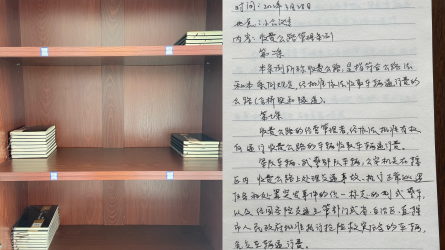 地点:小会议室
内容:收费公路管理条例
第二条
本条例所称收费公路,是指符合公路法
和本条例规定,经批准依法收取车辆通行费的
公路(含桥梁和隧道)。
第七条
收费公路的经营管理者,经依法批准有权
向通行收费公路的车辆收取车辆通行费。
军队车辆、武警部队车辆,公安机关在辖
区内收费公路上处理交通事故、执行正常巡逻
任务和处置突发事件的统一标志的制式警车,
以及经国务院交通主管部门或者省、自治区、直辖
市人民政府批准执行抢险救灾任务的车辆,
免交车辆通行费。